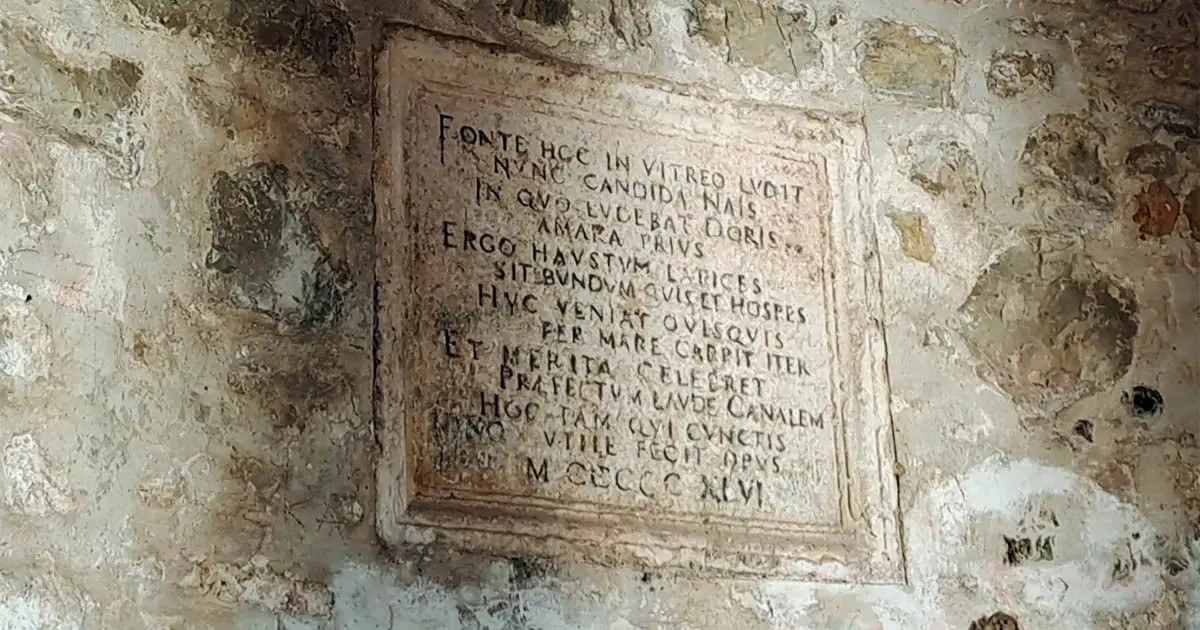 FONTE HOC IN VITREO LVDIT
NVNC CANDIDA NAIS
IN QVO LVDEBAT DORIS
AMARA PRIVS
ERGO HAVSTVM LATICES
SITIBVNDVM QVISET HOSPES
HVC VENIAT QVISQVIS
PER MARE CARPIT ITER
ET MERITA CELEBRET
PRÆFECTVM LAVDE CANALEM
HOC TAM QVI CVNCTIS
VTILE FECIT OPVS
M CCCCC XLVI